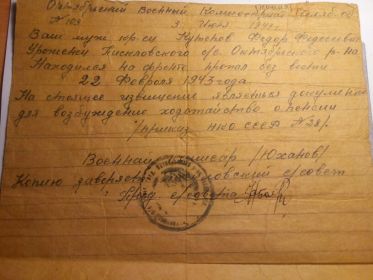 Октябрьский Военный Комиссариат
№ 103 3 Июня
Ваш муж кр-ец Кутенов Федор Федосеевич
Уроженец Кисловского с/с. Октябрьского р-на
Находился на фронте пропал без вести
22 Февраля 1943 года.
Настоящее извещение является документом
для возбуждения ходатайства о пенсии
/приказ НКО СССР № 28/.
Военный Комиссар /Юханов/
Копию заверяет с/совет
Пред. с/совета